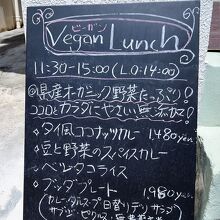 ビーガン
Vegan Lunch
11:30-15:00 (L.O.14:00)
◎県産オーガニック野菜たっぷり!
ココロとカラダにやさしい無添加!
◇タイ風ココナッツカレー 1,480yen
◇豆と野菜のスパイスカレー
◇ベジタコライス
◇ブッダプレート 1,980yen
(カレー・タルスープ・日替りデリ・サラダ